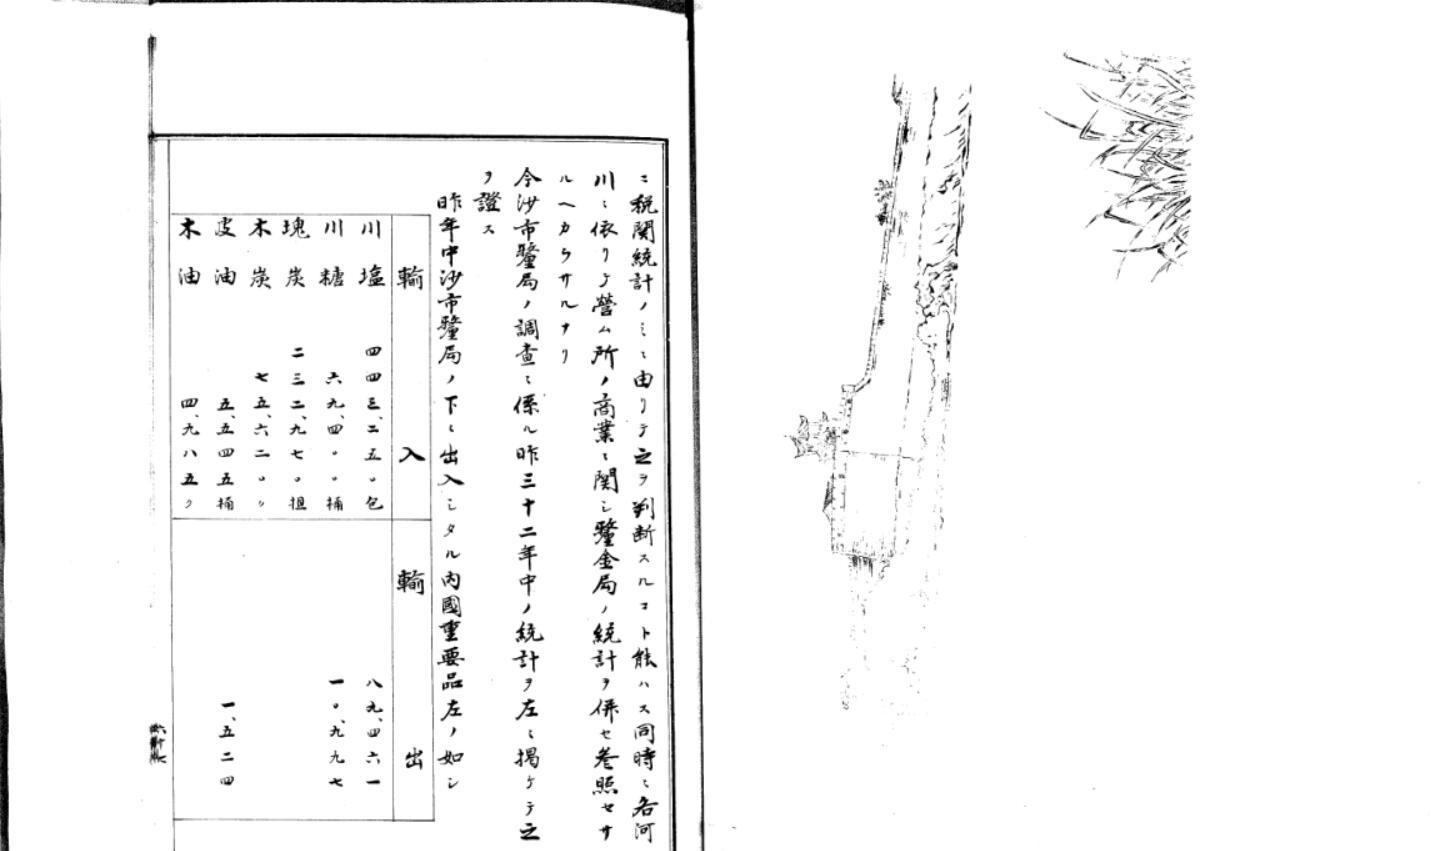 ニ税関統計ノミニ由リテ之ヲ判断スルコト能ハス同時ニ各河
川ニ依リテ營ム所ノ商業ニ関シ釐金局ノ統計ヲ併セ参照セサ
ルヘカラサルナリ
今沙市釐局ノ調査ニ係ル昨三十二年中ノ統計ヲ左ニ掲ケテ之
ヲ證ス
昨年中沙市釐局ノ下ニ出入シタル内國重要品左ノ如シ
輸入 輸出
川塩 四四三、二五〇包 八九、四六一
川糖 六九、四〇〇桶 一〇、九九七
塊炭 二三二、九七〇担
木炭 七五、六二〇〃
皮油 五、五四五桶 一、五二四
木油 四、九八五〃